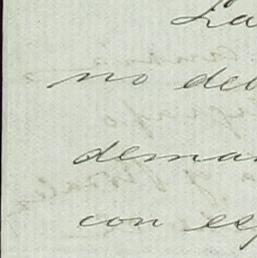 La
no deb
deman
con esp